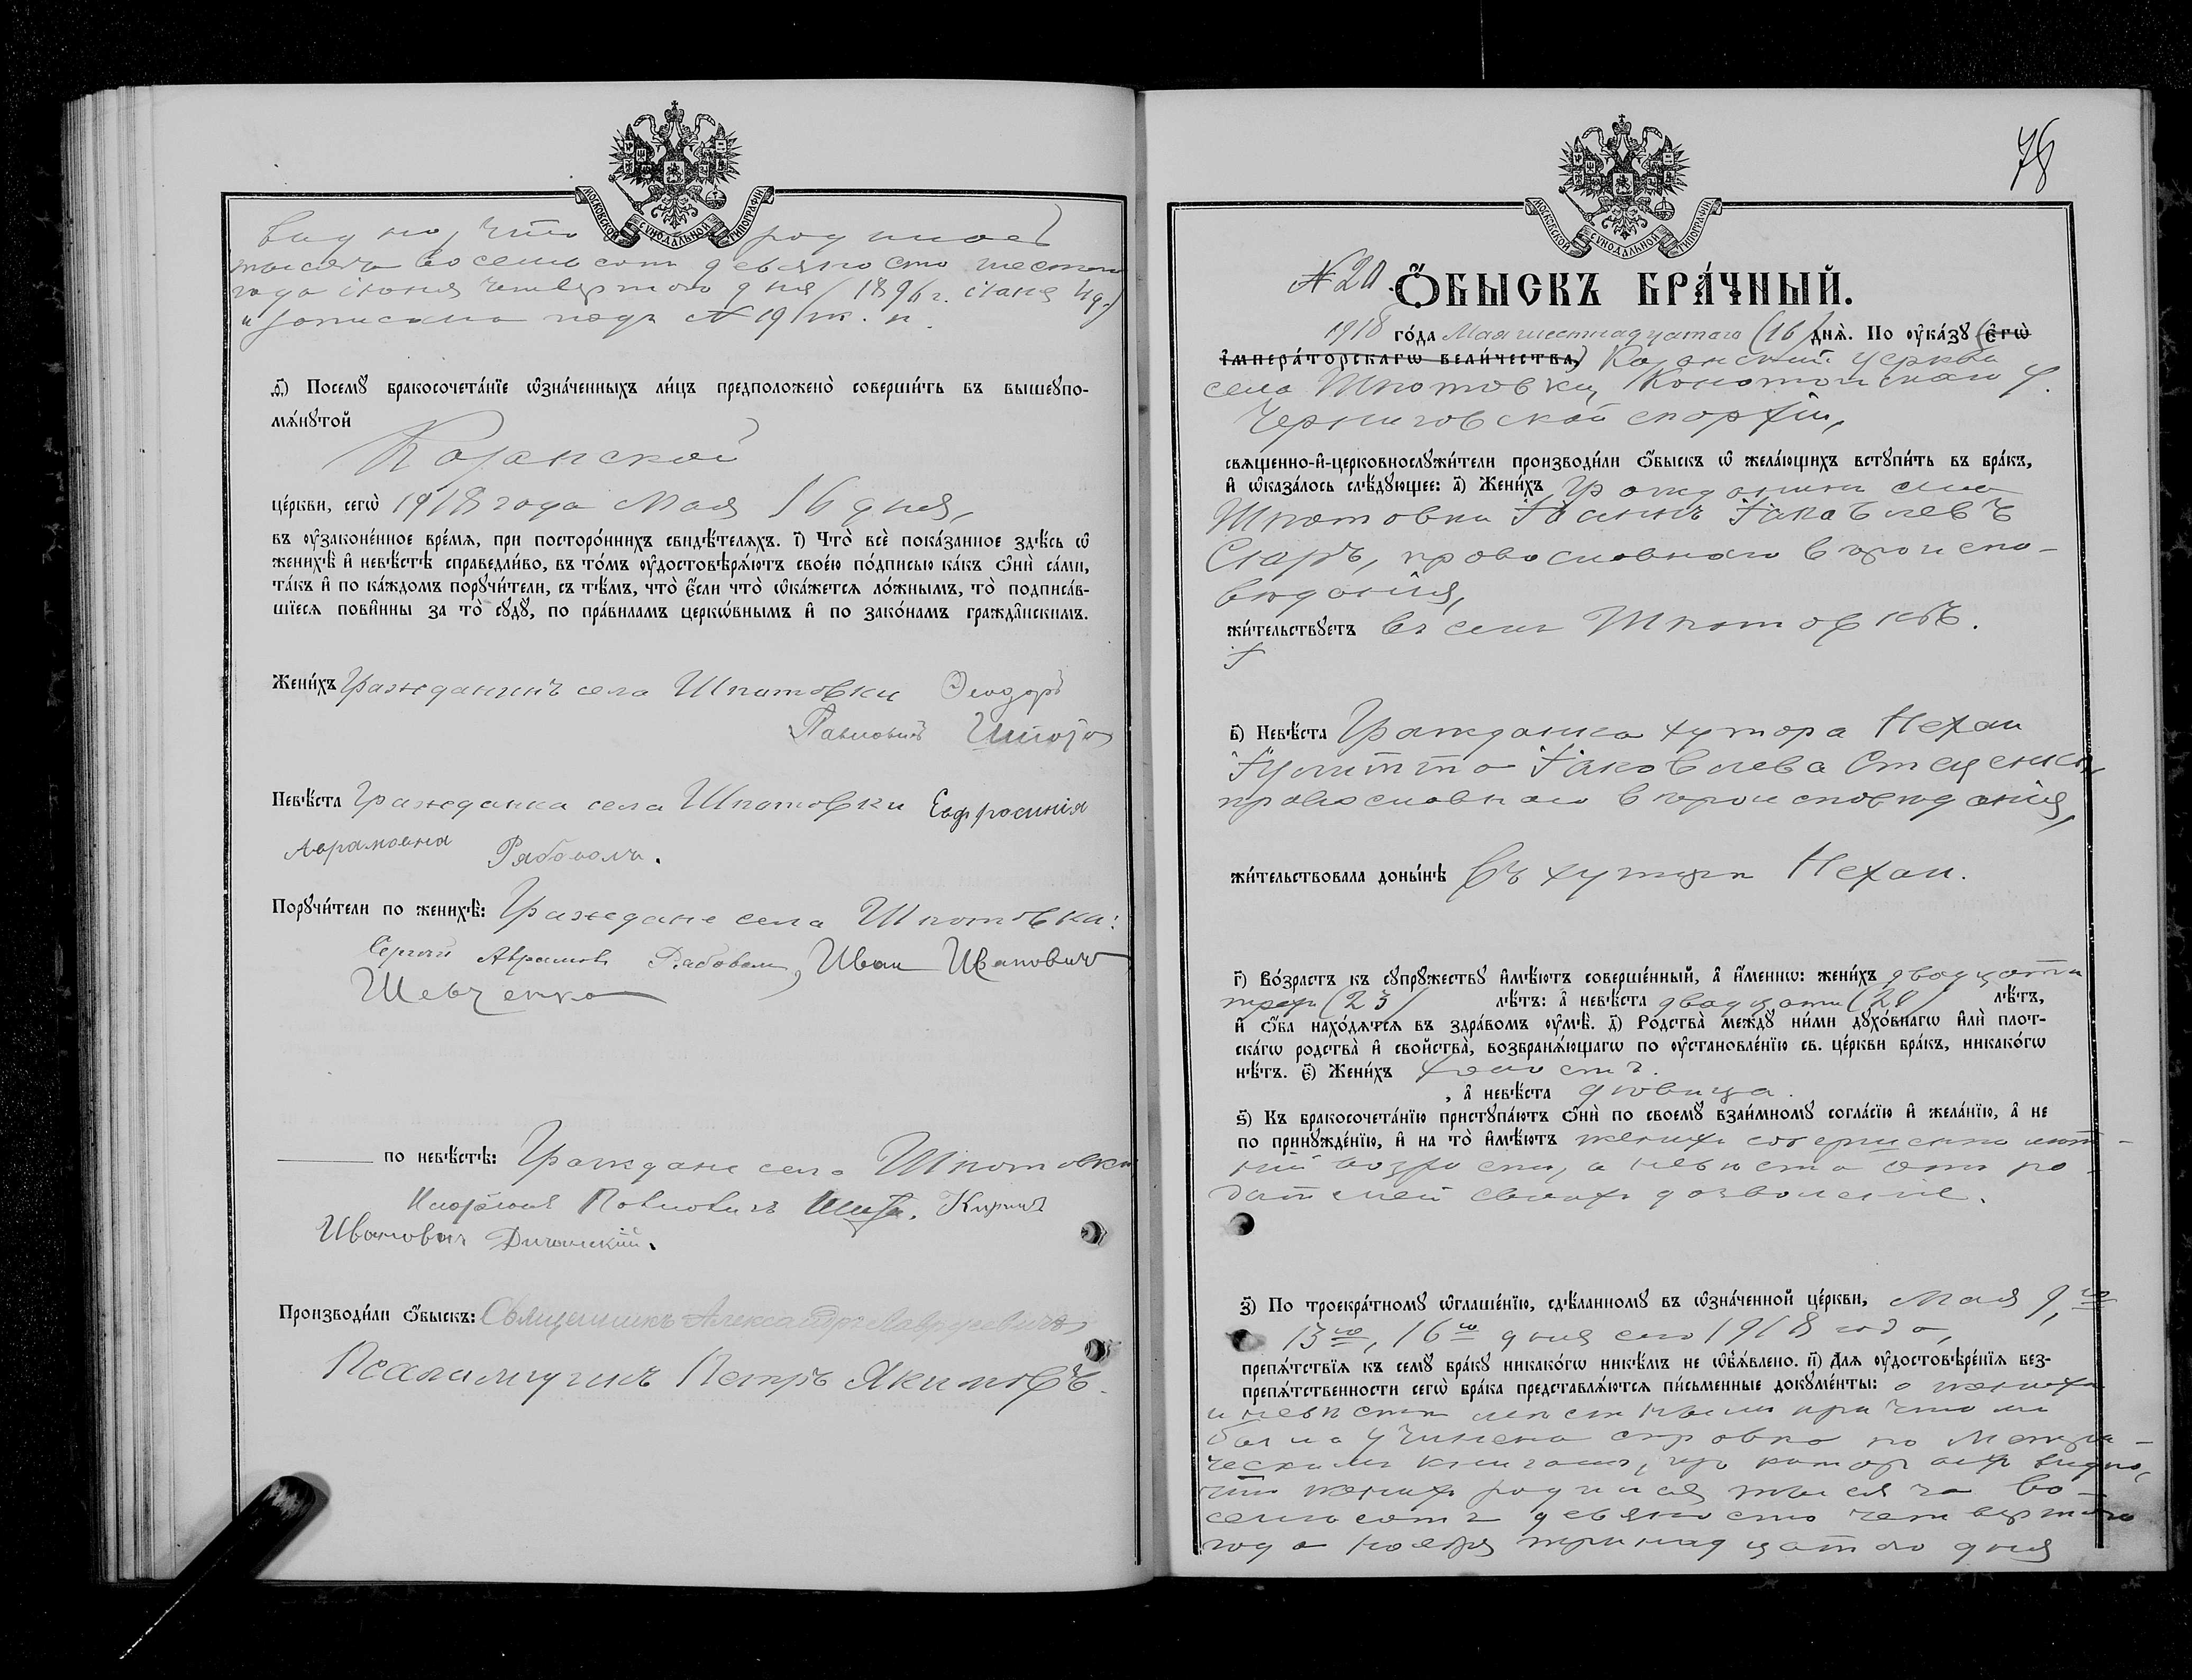 МОСКОВСКОЙ СѴНОДАЛЬНОЙ ТИПОГРАФІИ
видно, что родилась
тысяча восемьсотъ девяносто шестого
года іюня четвертого дня (1896 г. іюня 4 д.)
и записана подъ № 19 ж. п.
Ѳ҃) Посемꙋ бракосочета́нїе ѡ҆зна́ченныхъ ли́цъ предположено̀ соверши́ть въ вышеꙋпо-
мѧ́нꙋтой
Казанской
це́ркви, сегѡ̀ 1918 года Мая 16 дня,
въ ᲂу҆законе́нное вре́мѧ, при посторо́ннихъ свидѣ́телѧхъ. І҃) Что̀ всѐ пока́занное здѣ́сь ѡ҆
женихѣ̀ и҆ невѣ́стѣ справедли́во, въ то́мъ ᲂу҆достовѣрѧ́ютъ свое́ю по́дписью ка́къ ѻ҆нѝ са́ми,
та́къ и҆ по ка́ждомъ порꙋчи́тели, съ тѣ́мъ, что̀ є҆́сли что̀ ѡ҆ка́жетсѧ ло́жнымъ, то̀ подписа́в-
шїесѧ пови́нны за то̀ сꙋдꙋ̀, по пра́виламъ церкѡ́внымъ и҆ по зако́намъ гражда́нскимъ.
Жени́хъ Гражданинъ села Шпотовки Ѳеодоръ
Павловичъ
Невѣ́ста Гражданка села Шпотовки Евфросинія
Аврамовна Рябоволъ.
Порꙋчи́тели по женихѣ̀: Граждане села Шпотовки:
Сергій Аврамовъ Рябоволъ, Иван Иванович
Шевченко
по невѣ́стѣ: Граждане села Шпотовки
Павловичъ Кирилъ
Ивановичъ
Производи́ли ѻ҆́быскъ: Священникъ Александръ Лавруевичъ
Псаломщикъ Петръ Якимовъ.
78
МОСКОВСКОЙ СѴНОДАЛЬНОЙ ТИПОГРАФІИ
№ 20. Ѻ҆́БЫСКЪ БРА́ЧНЫЙ.
1918 го́да Мая шестнадцатаго (16) днѧ̀. По ᲂу҆ка́зꙋ (є҆гѡ̀
і҆мпера́торскагѡ вели́чества) Казанской церкви
села Шпотовки, Конотопскаго у.
Черниговской епархіи,
свѧщенно-и҆-церковнослꙋжи́тели производи́ли ѻ҆́быскъ ѡ҆ жела́ющихъ встꙋпи́ть въ бра́къ,
и҆ ѡ҆каза́лось слѣ́дꙋющее: а҃) Жени́хъ Гражданинъ села
Шпотовки Іоаннъ Іаковлевъ
Сларъ, православнаго вѣроиспо-
вѣданія,
жи́тельствꙋетъ въ селѣ Шпотовкѣ.
в҃) Невѣ́ста Гражданка хутора Нехаи
Іулитта Іаковлева Стеценко,
православнаго вѣроисповѣданія,
жи́тельствовала доны́нѣ въ хуторѣ Нехаи.
г҃) Во́зрастъ къ сꙋпрꙋ́жествꙋ и҆мѣ́ютъ соверше́нный, а҆ и҆́меннѡ: жени́хъ двадцати
трехъ (23) лѣ́тъ: а҆ невѣ́ста двадцати (20) лѣ́тъ,
и҆ ѻ҆́ба нахо́дѧтсѧ въ здра́вомъ ᲂу҆мѣ̀. д҃) Ро́дства междꙋ̀ ни́ми дꙋхо́внагѡ и҆лѝ плот-
ска́гѡ родства̀ и҆ свойства̀, возбранѧ́ющагѡ по ᲂу҆становле́нїю св. це́ркви бра́къ, никако́гѡ
нѣ́тъ. є҃) Жени́хъ холостъ.
, а҆ невѣ́ста дѣвица.
ѕ҃) Къ бракосочета́нїю пристꙋпа́ютъ ѻ҆нѝ по своемꙋ̀ взаи́мномꙋ согла́сїю и҆ жела́нїю, а҆ не
по принꙋжде́нїю, и҆ на то̀ и҆мѣ́ютъ женихъ совершеннолѣт-
ній возрастъ, а невѣста отъ ро-
дителей своихъ дозволеніе.
з҃) По троекра́тномꙋ ѡ҆глаше́нїю, сдѣ́ланномꙋ въ ѡ҆зна́ченной це́ркви, Мая 9, го
13 го, 16 го дня сего 1918 года,
препѧ́тствїѧ къ семꙋ̀ бра́кꙋ никако́гѡ никѣ́мъ не ѡ҆б̾ѧ́влено. и҃) Длѧ ᲂу҆достовѣре́нїѧ без-
препѧ́тственности сегѡ̀ бра́ка представлѧ́ютсѧ пи́сьменные докꙋме́нты: о женихѣ
и невѣстѣ мѣстнымъ причтомъ
была учинена справка по метри-
ческимъ книгамъ, изъ которыхъ видно,
что женихъ родился тысяча во-
семьсотъ девяносто четвертого
года ноября тринадцатого дня